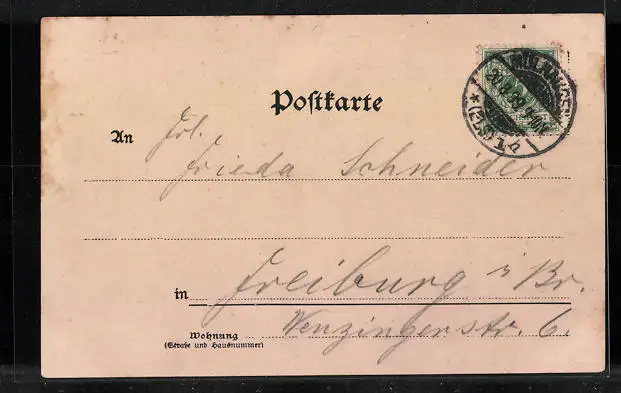 Postkarte
An Frl.
Frieda Schneider
in Freiburg i Br.
Wohnung
(Straße und Hausnummer)
Wenzingerstr. 6.